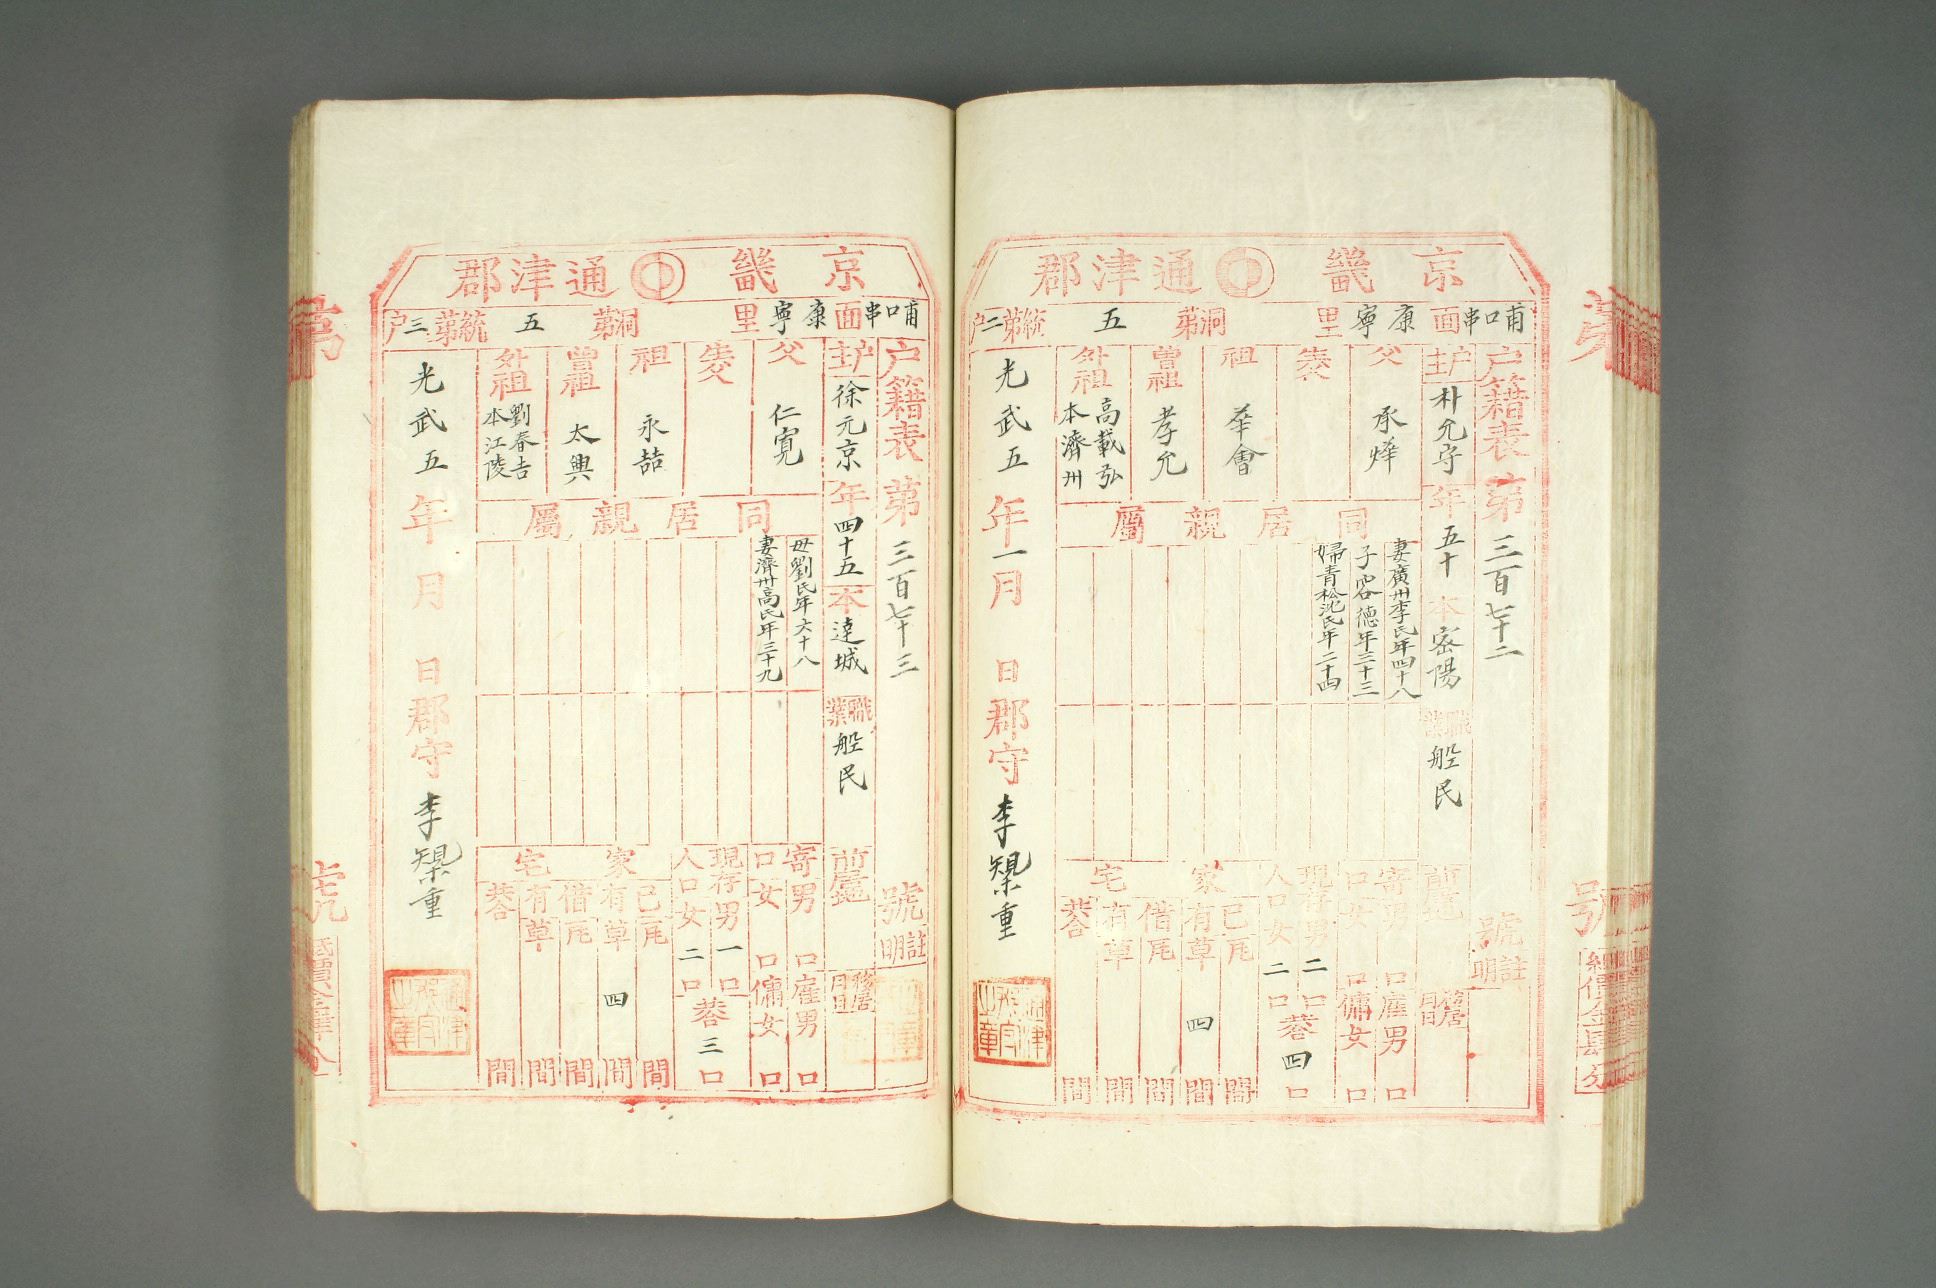 京畿 通津郡
哺口串面 康寧里 洞第 五 統第二户
户籍表 第 三百七十二 號 註明
户主 朴允守 年 五十 本 密陽 職業 船民
父 承燁
祖 華會
曾祖 孝允
外祖 高載弘 本濟州
同居親屬
妻廣州李氏年四十八
婦青松沈氏年二十四
寄口 男 口 女 口
雇男 口 傭女 口
現存人口 男 二 口 女 二 口 共 四 口
家宅
己有 瓦 間 草 四 間
借有 瓦 間 草 間
共 間
光武五年一月 日郡守 李
京畿 通津郡
哺口串面 康寧里 洞第 五 統第三户
户籍表 第 三百七十三 號 註明
户主 徐元京 年 四十五 本 達城 職業 船民
父 仁寬
祖 永喆
曾祖 太興
外祖 劉春吉 本江陵
同居親屬
母劉氏年六十八
妻濟州高氏年三十九
寄口 男 口 女 口
雇男 口 傭女 口
現存人口 男 一 口 女 二 口 共 三 口
家宅
己有 瓦 間 草 四 間
借有 瓦 間 草 間
共 間
光武五年 月 日郡守 李